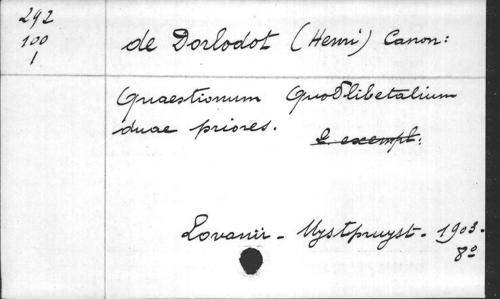 292
100
1
de Dorlodot (Henri) Canon:
Quaestionum Quodlibetalium
duae priores.
2 exempl.
Lovanii - Uystpruyst - 1903.
8º